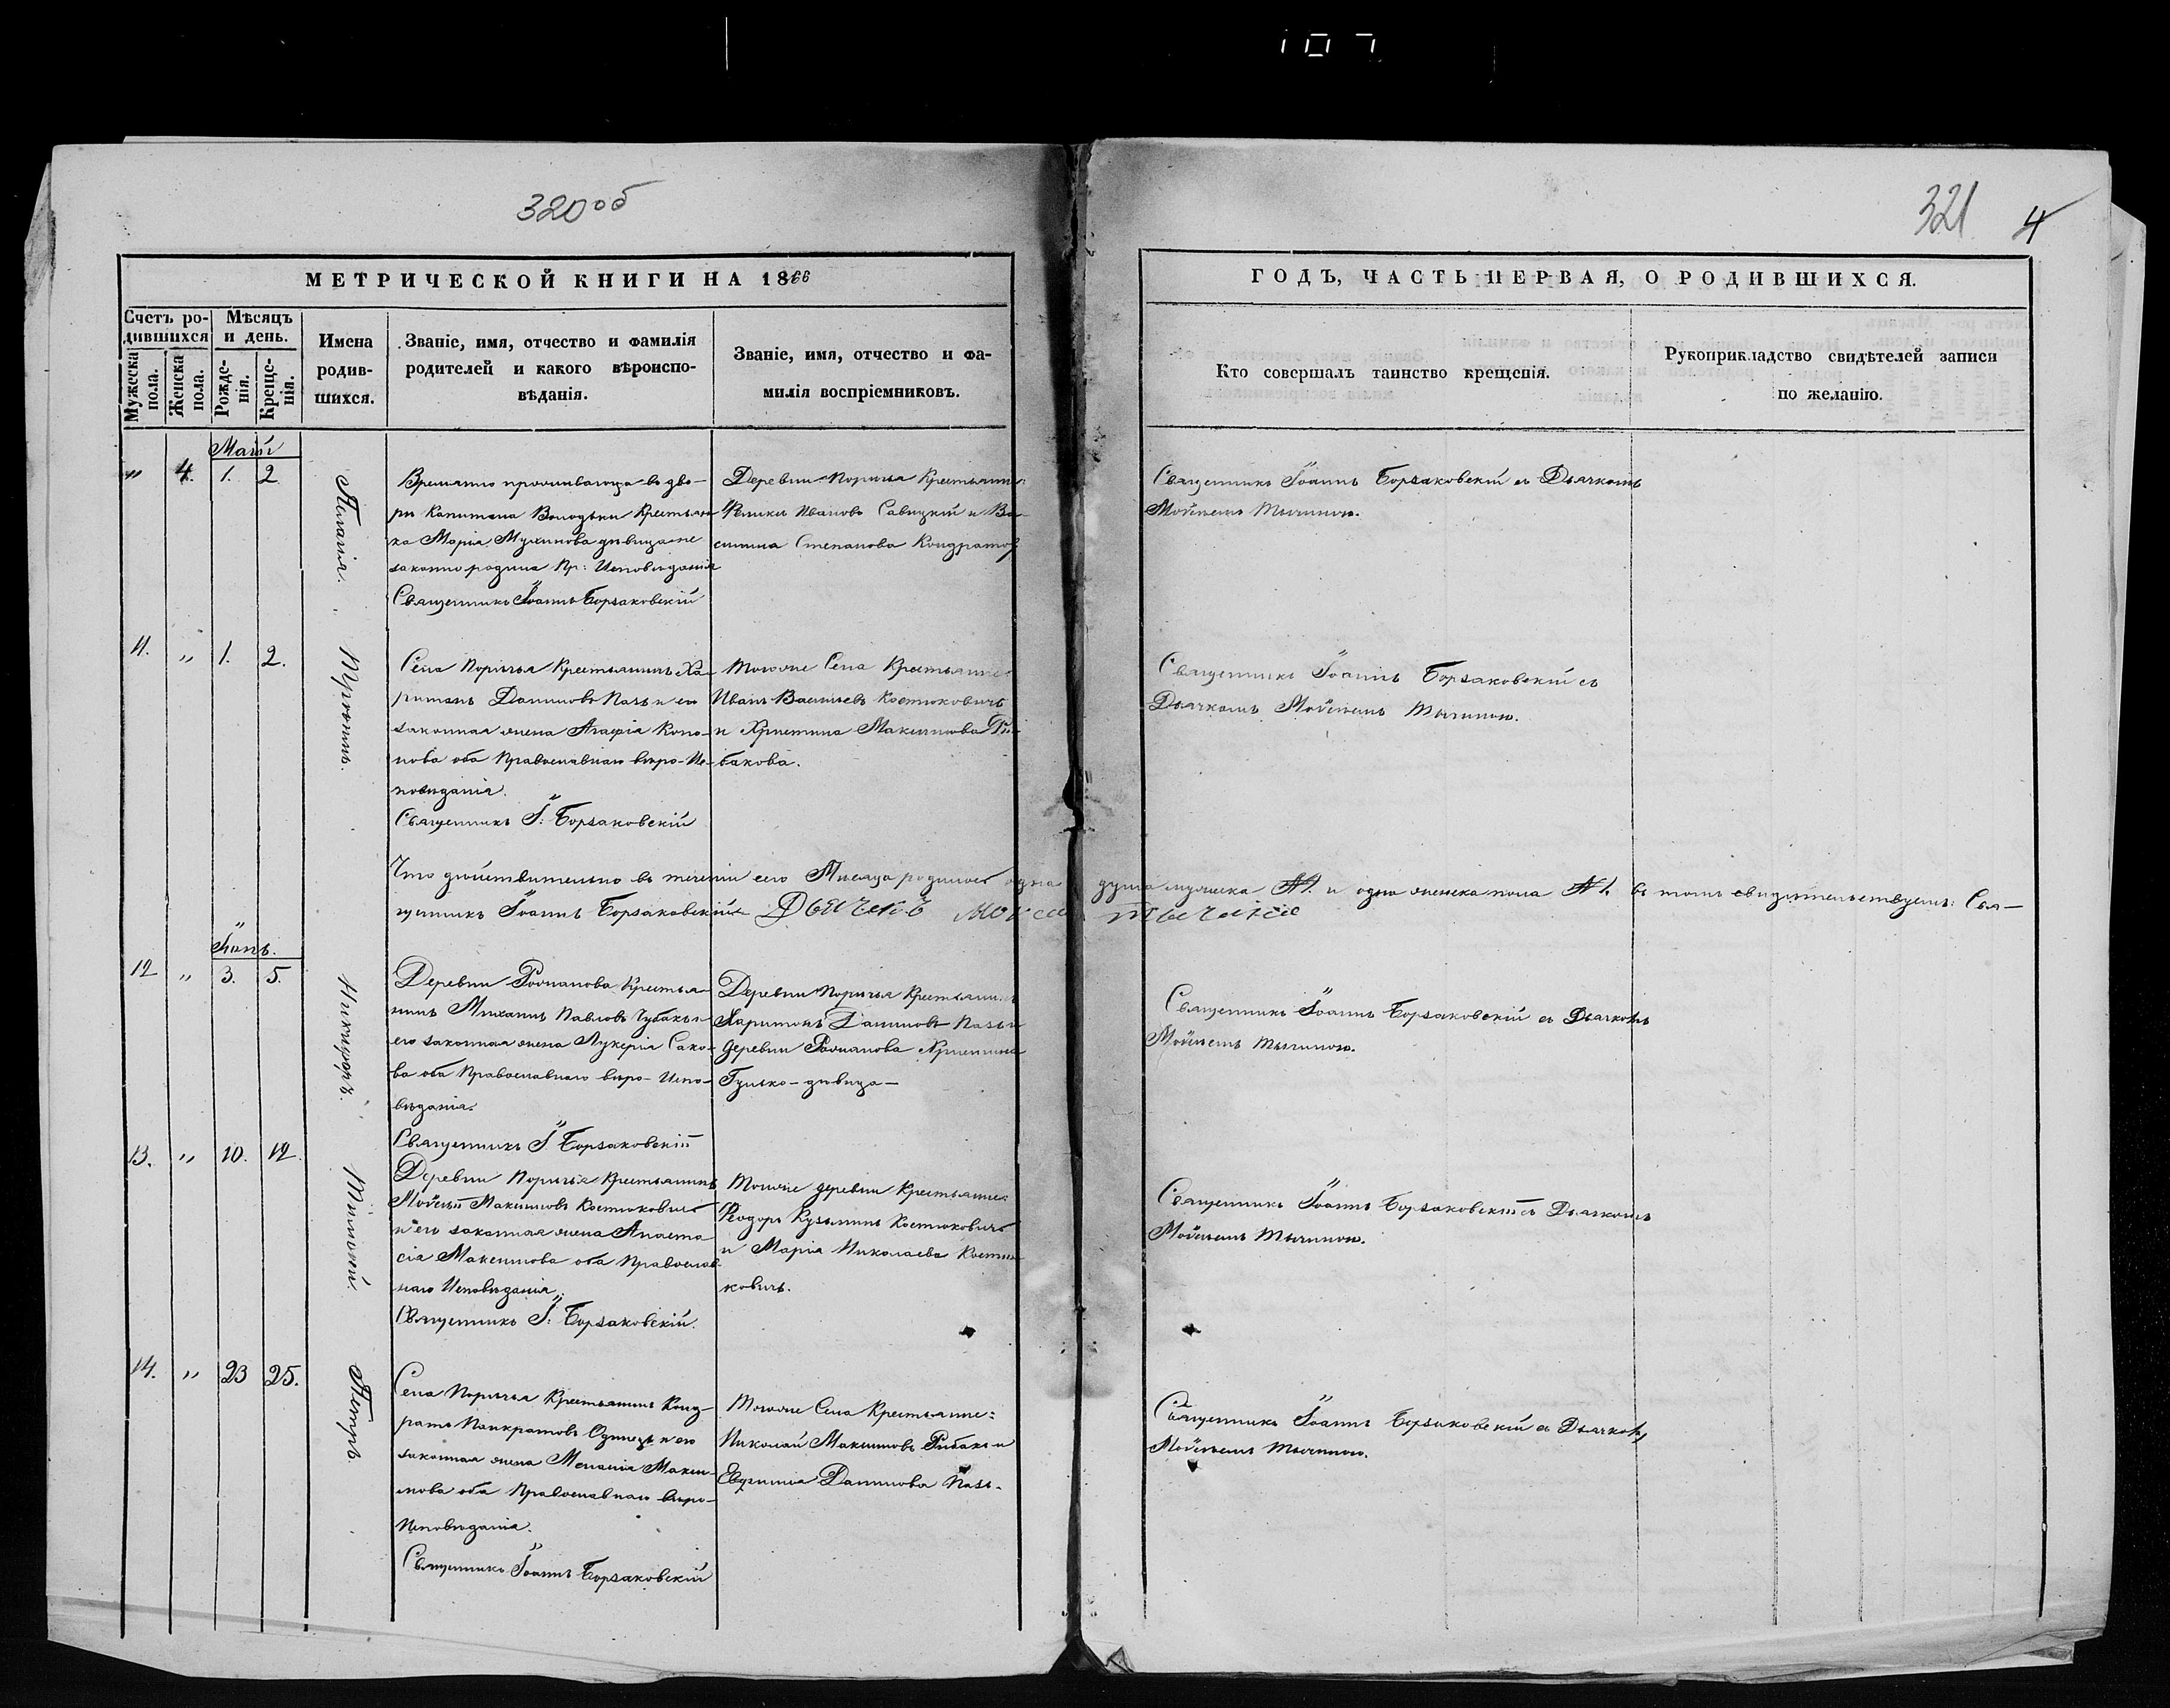 107
320 об
321 4
МЕТРИЧЕСКОЙ КНИГИ НА 1866
ГОДЪ, ЧАСТЬ ПЕРВАЯ, О РОДИВШИХСЯ.
Счетъ ро-
дившихся
Мужеска пола.
Женска пола.
Мѣсяцъ
и день.
Рожде-
нія.
Креще-
нія.
Имена
родив-
шихся.
Званіе, имя, отчество и фамилія
родителей и какого вѣроиспо-
вѣданія.
Званіе, имя, отчество и фа-
милія воспріемниковъ.
Кто совершалъ таинство крещенія.
Рукоприкладство свидѣтелей записи
по желанію.
Май
" 4. 1. 2
Пелагія.
Временно проживающа въ дво-
ри Капитана Володьки Крестьян-
ка Марія дѣвица не
законно родила Пр: Исповѣданія
Священникъ Іоаннъ Борзаковскій
Деревни Поричья Крестьянин:
Иванов Савицкій и Ва-
силина Степанова Кондратов
Священникъ Іоаннъ Борзаковскій съ Дьячкомъ
Мойсеемъ Тычиною.
11. " 1. 2.
Села Поричья Крестьянинъ Ха-
ритонъ Даниловъ Пазь и его
законная жена Агафія Коно-
нова оба Православнаго вѣро-Ис-
повѣданія.
Священникъ І: Борзаковскій
Тогоже Села Крестьяне
Иванъ Васильевъ Костюковичь
и Христина Максимова Ри-
бакова.
Священникъ Іоаннъ Борзаковскій съ
Дьячкомъ Мойсеемъ Тычиною.
Что дѣйствительно въ теченіи сего Мисяца родилось одна душа мужска №1. и одна женска пола №1. въ томъ свидѣтельствуемъ: Свя-
щенникъ Іоаннъ Борзаковскій Дьячекъ Моисей Тычина
Іюнь.
12 " 3. 5.
Никифоръ.
Деревни Рожанова Крестья-
нинъ Михаилъ Павловъ Чубакъ и
его законная жена Лукерія Сако-
ва оба Православнаго вѣро-Испо-
вѣданія.
Священникъ І. Борзаковскій
Деревни Поричья Крестьянинъ
Харитонъ Даниловъ Пазь и
деревни Рожанова Христина
Гулько-дѣвица-
Священникъ Іоаннъ Борзаковскій съ Дьячкомъ
Мойсеемъ Тычиною.
13. " 10. 12.
Тимофей.
Деревни Поричья Крестьянинъ
Мойсей Максимовъ Костюковичь
и его законная жена Анаста-
сія Максимова оба Православ-
наго Исповѣданія.
Священникъ І: Борзаковскій.
Тогоже деревни Крестьяне:
Феодоръ Кузьминъ Костюковичь
и Марія Николаева Костю-
ковичь.
Священникъ Іоаннъ Борзаковскій съ Дьячкомъ
Мойсеемъ Тычиною.
14. " 23 25.
Петръ
Села Поричья Крестьянинъ Конд-
ратъ Панкратовъ Одинецъ и его
законная жена Меланія Макси-
мова оба Православнаго вѣро-
Исповѣданія.
Священникъ Іоаннъ Борзаковскій
Тогоже Села Крестьяне:
Николай Максимовъ Рибакъ и
Данилова Пазь.
Священникъ Іоаннъ Борзаковскій съ Дьячком
Мойсеемъ Тычиною.